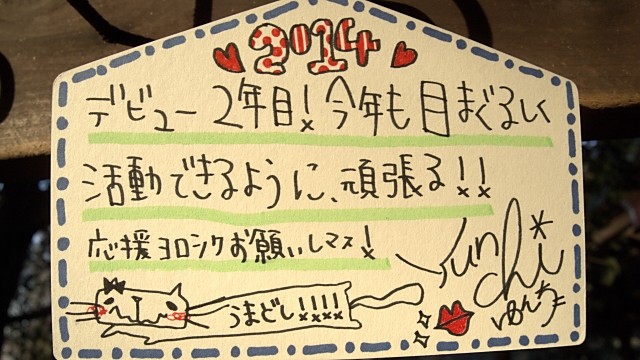 2014
デビュー2年目!今年も目まぐるしく
活動できるように、頑張る!!
応援ヨロシクお願いしマス!
うまどし!!!!
Yun*chi
ゆんち